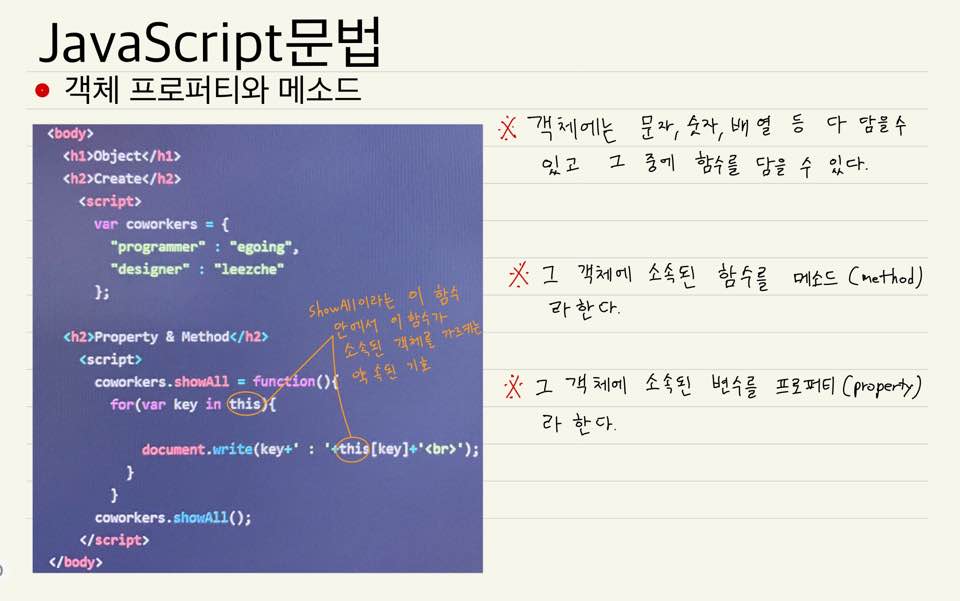 JavaScript문법
객체 프로퍼티와 메소드
<body>
<h1>Object</h1>
<h2>Create</h2>
<script>
var coworkers = {
"programmer" : "egoing",
"designer" : "leezche"
};
<h2>Property & Method</h2>
<script>
coworkers.showAll = function(){
for(var key in this){
document.write(key+' : '+this[key]+'<br>');
}
}
coworkers.showAll();
</script>
</body>
showAll이라는 이 함수
안에서 이 함수가
소속된 객체를 가르키는
약속된 기호
※ 객체에는 문자, 숫자, 배열 등 다 담을수
있고 그 중에 함수를 담을 수 있다.
※ 그 객체에 소속된 함수를 메소드 (method)
라 한다.
※ 그 객체에 소속된 변수를 프로퍼티 (property)
라 한다.